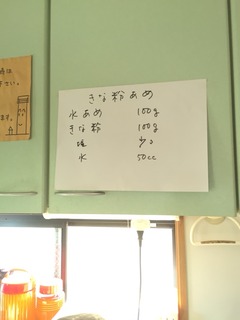 きな粉あめ
水あめ 100g
きな粉 100g
塩 少々
水 50cc